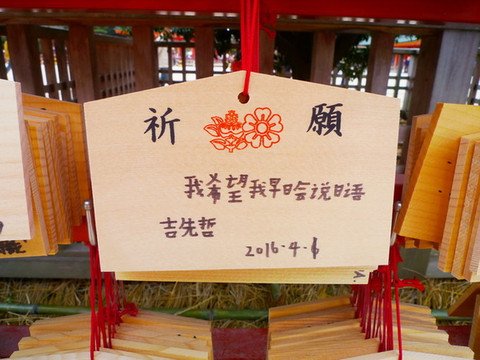 祈願
我希望我早日会说日语
吉先哲
2016.4.6